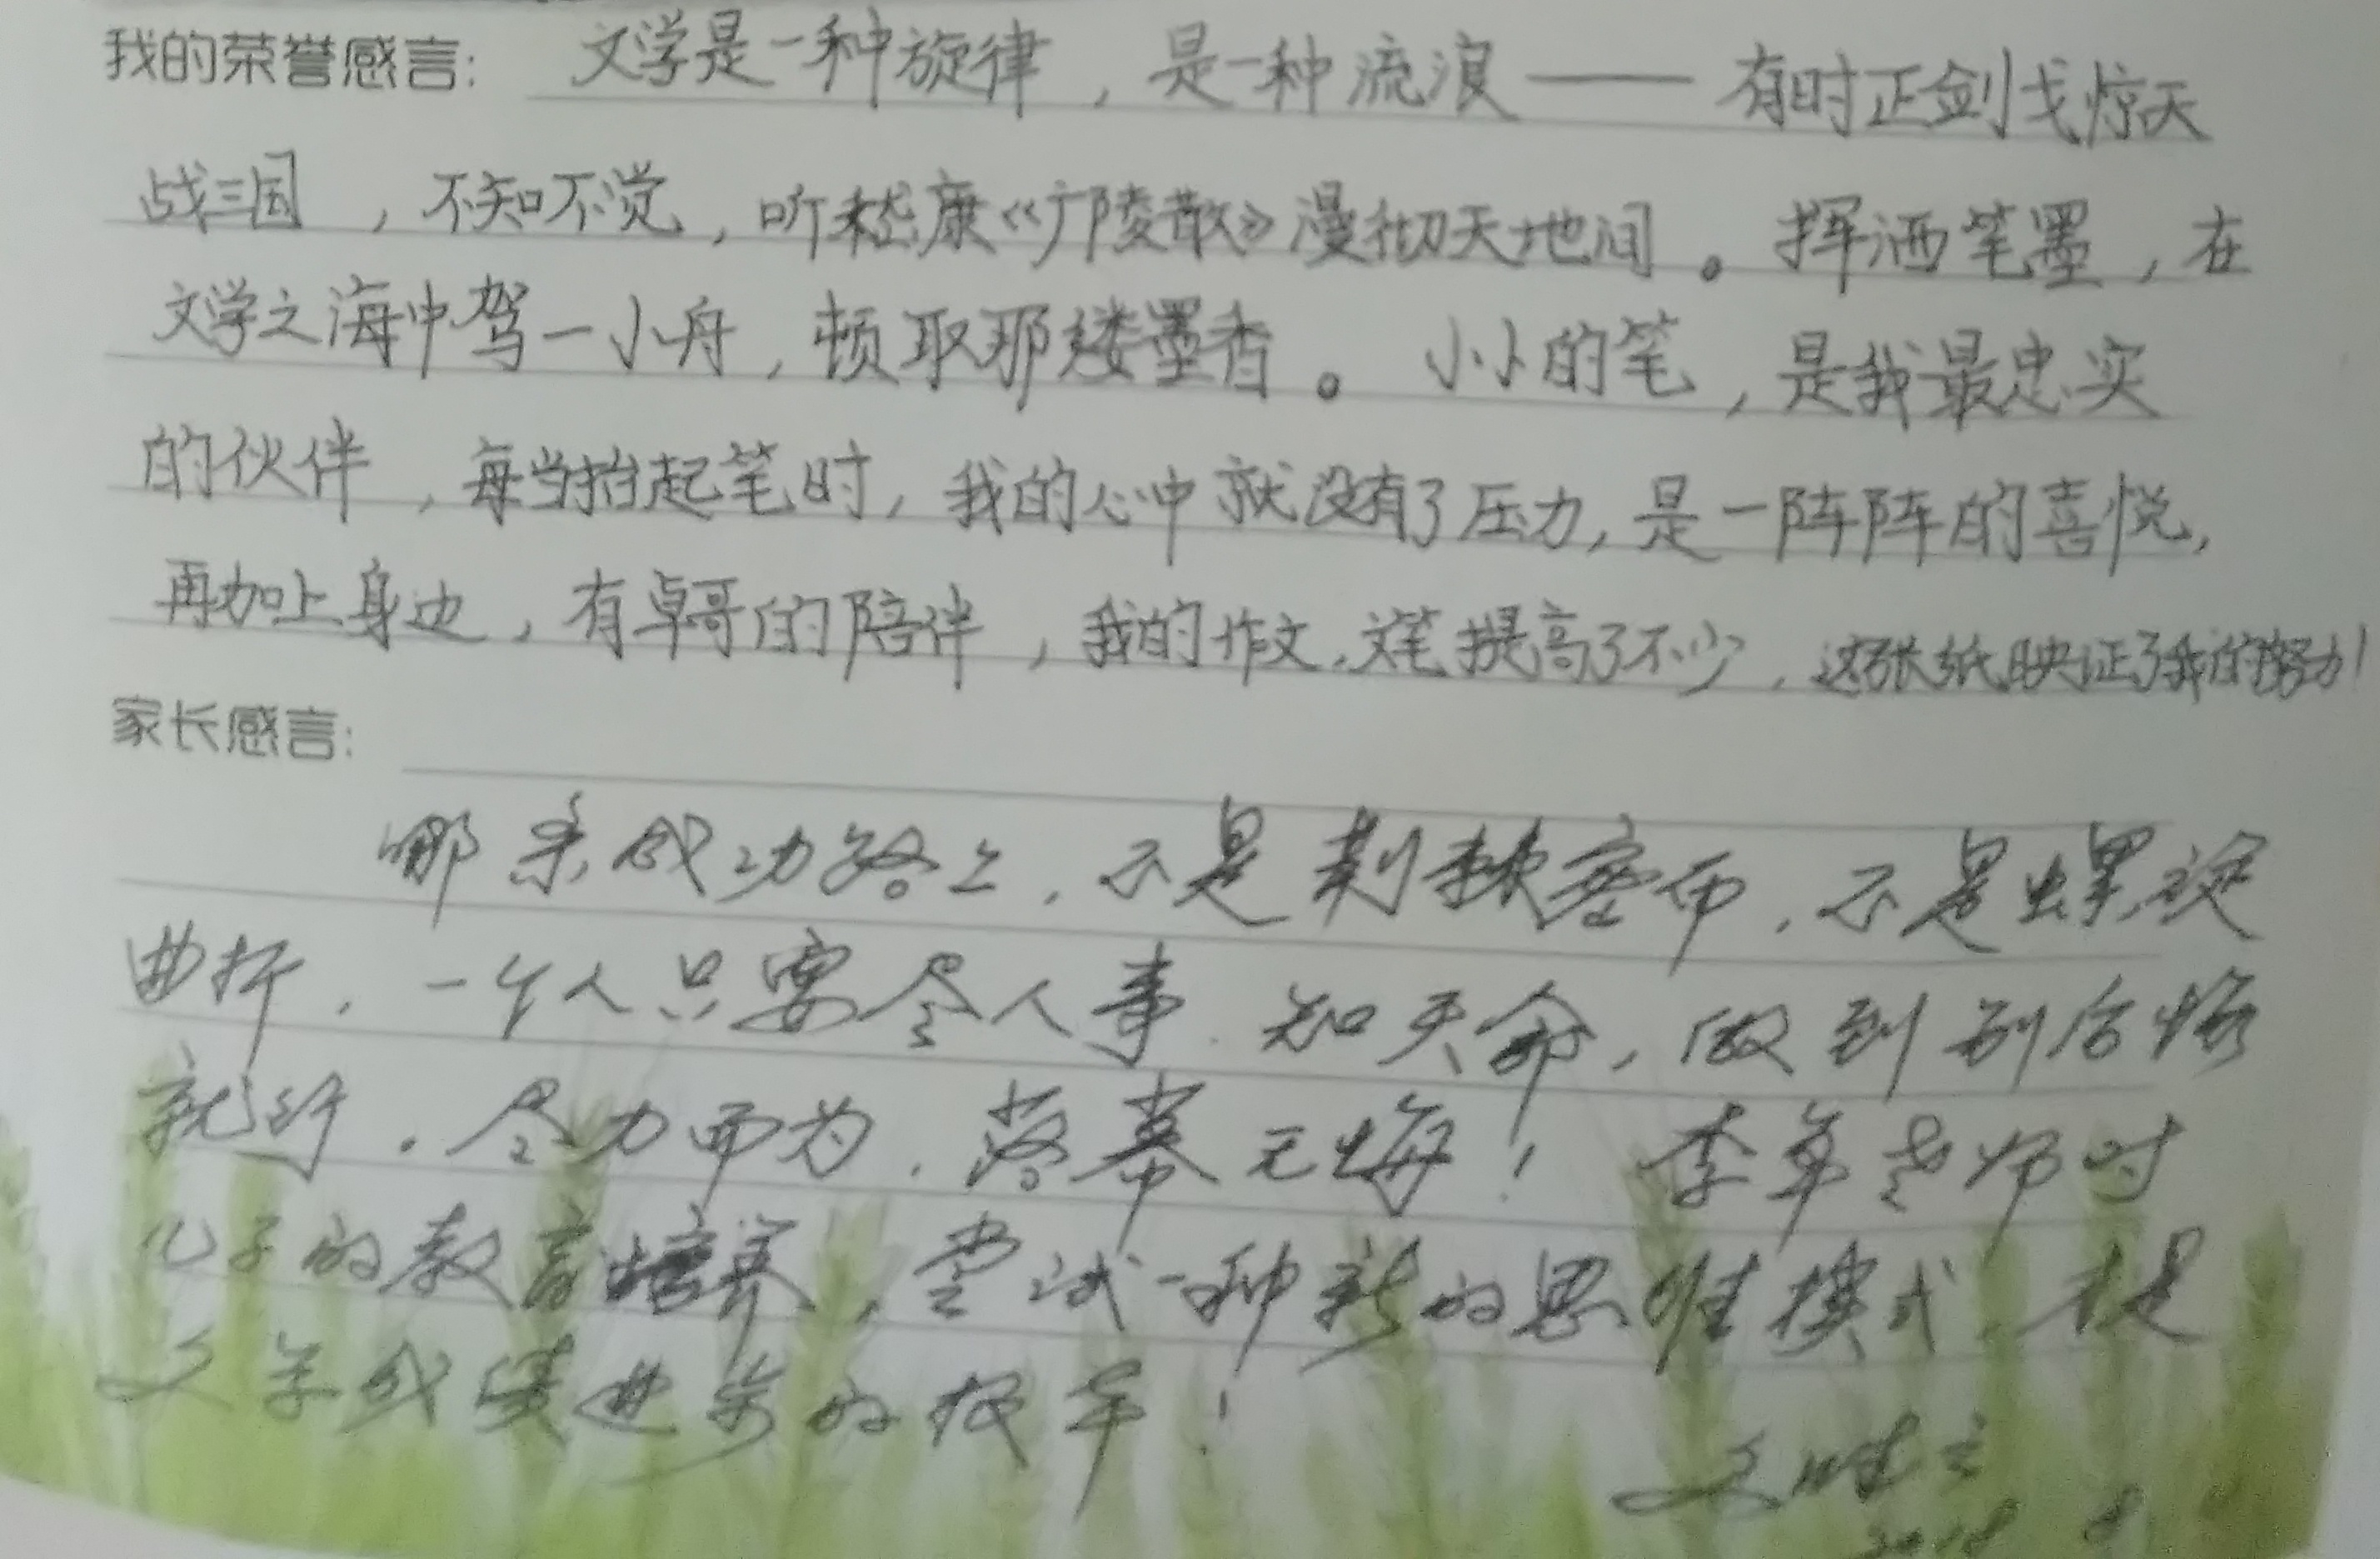 我的荣誉感言: 文学是一种旋律，是一种流浪——有时正剑戈惊天
战三国，不知不觉，听嵇康《广陵散》漫彻天地间。挥洒笔墨，在
文学之海中驾一小舟，顿取那缕墨香。小小的笔，是我最忠实
的伙伴，每当抬起笔时，我的心中就没有了压力，是一阵阵的喜悦，
再加上身边，有卓哥的陪伴，我的作文、文笔提高了不少，这张纸映证了我的努力！
家长感言:
哪条成功路上，不是荆棘密布，不是螺旋
曲折，一个人只要尽人事、知天命，做到别后悔
就行。尽力而为，落幕无悔！李卓老师对
儿子的教育培养，尝试一种新的思维模式，才是
文学成绩进步的根本！
2018